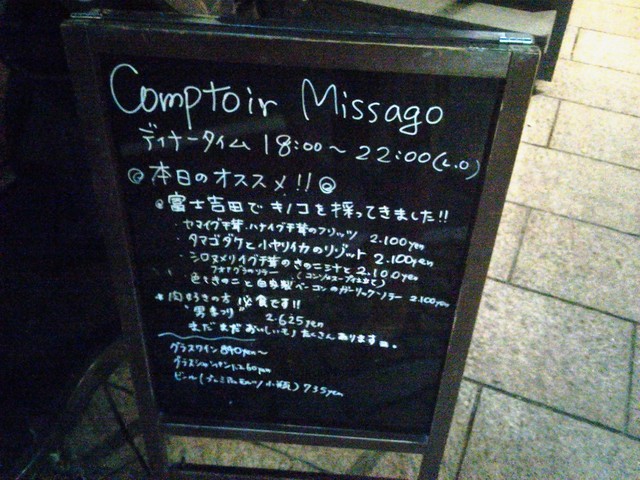 Comptoir Missago
ディナータイム 18:00〜22:00(L.O)
◎本日のオススメ!!◎
◎富士吉田でキノコを採ってきました!!
・ヤマイグチ茸、ハナイグチ茸のフリッツ 2.100yen
・タマゴダケと小ヤリイカのリゾット 2.100yen
・シロヌメリイグチ茸のきのこ汁と 2.100yen
フォアグラのソテー (コンソメスープ仕立て)
色ときのこと自家製ベーコンのガーリックソテー 2.100yen
★肉好きの方 必食です!!
"男まつり" 2.625yen
まだまだおいしいモノたくさんあります。
グラスワイン 840yen〜
グラスシャンパン 1.260yen
ビール(プレミアムモルツ小瓶) 735yen